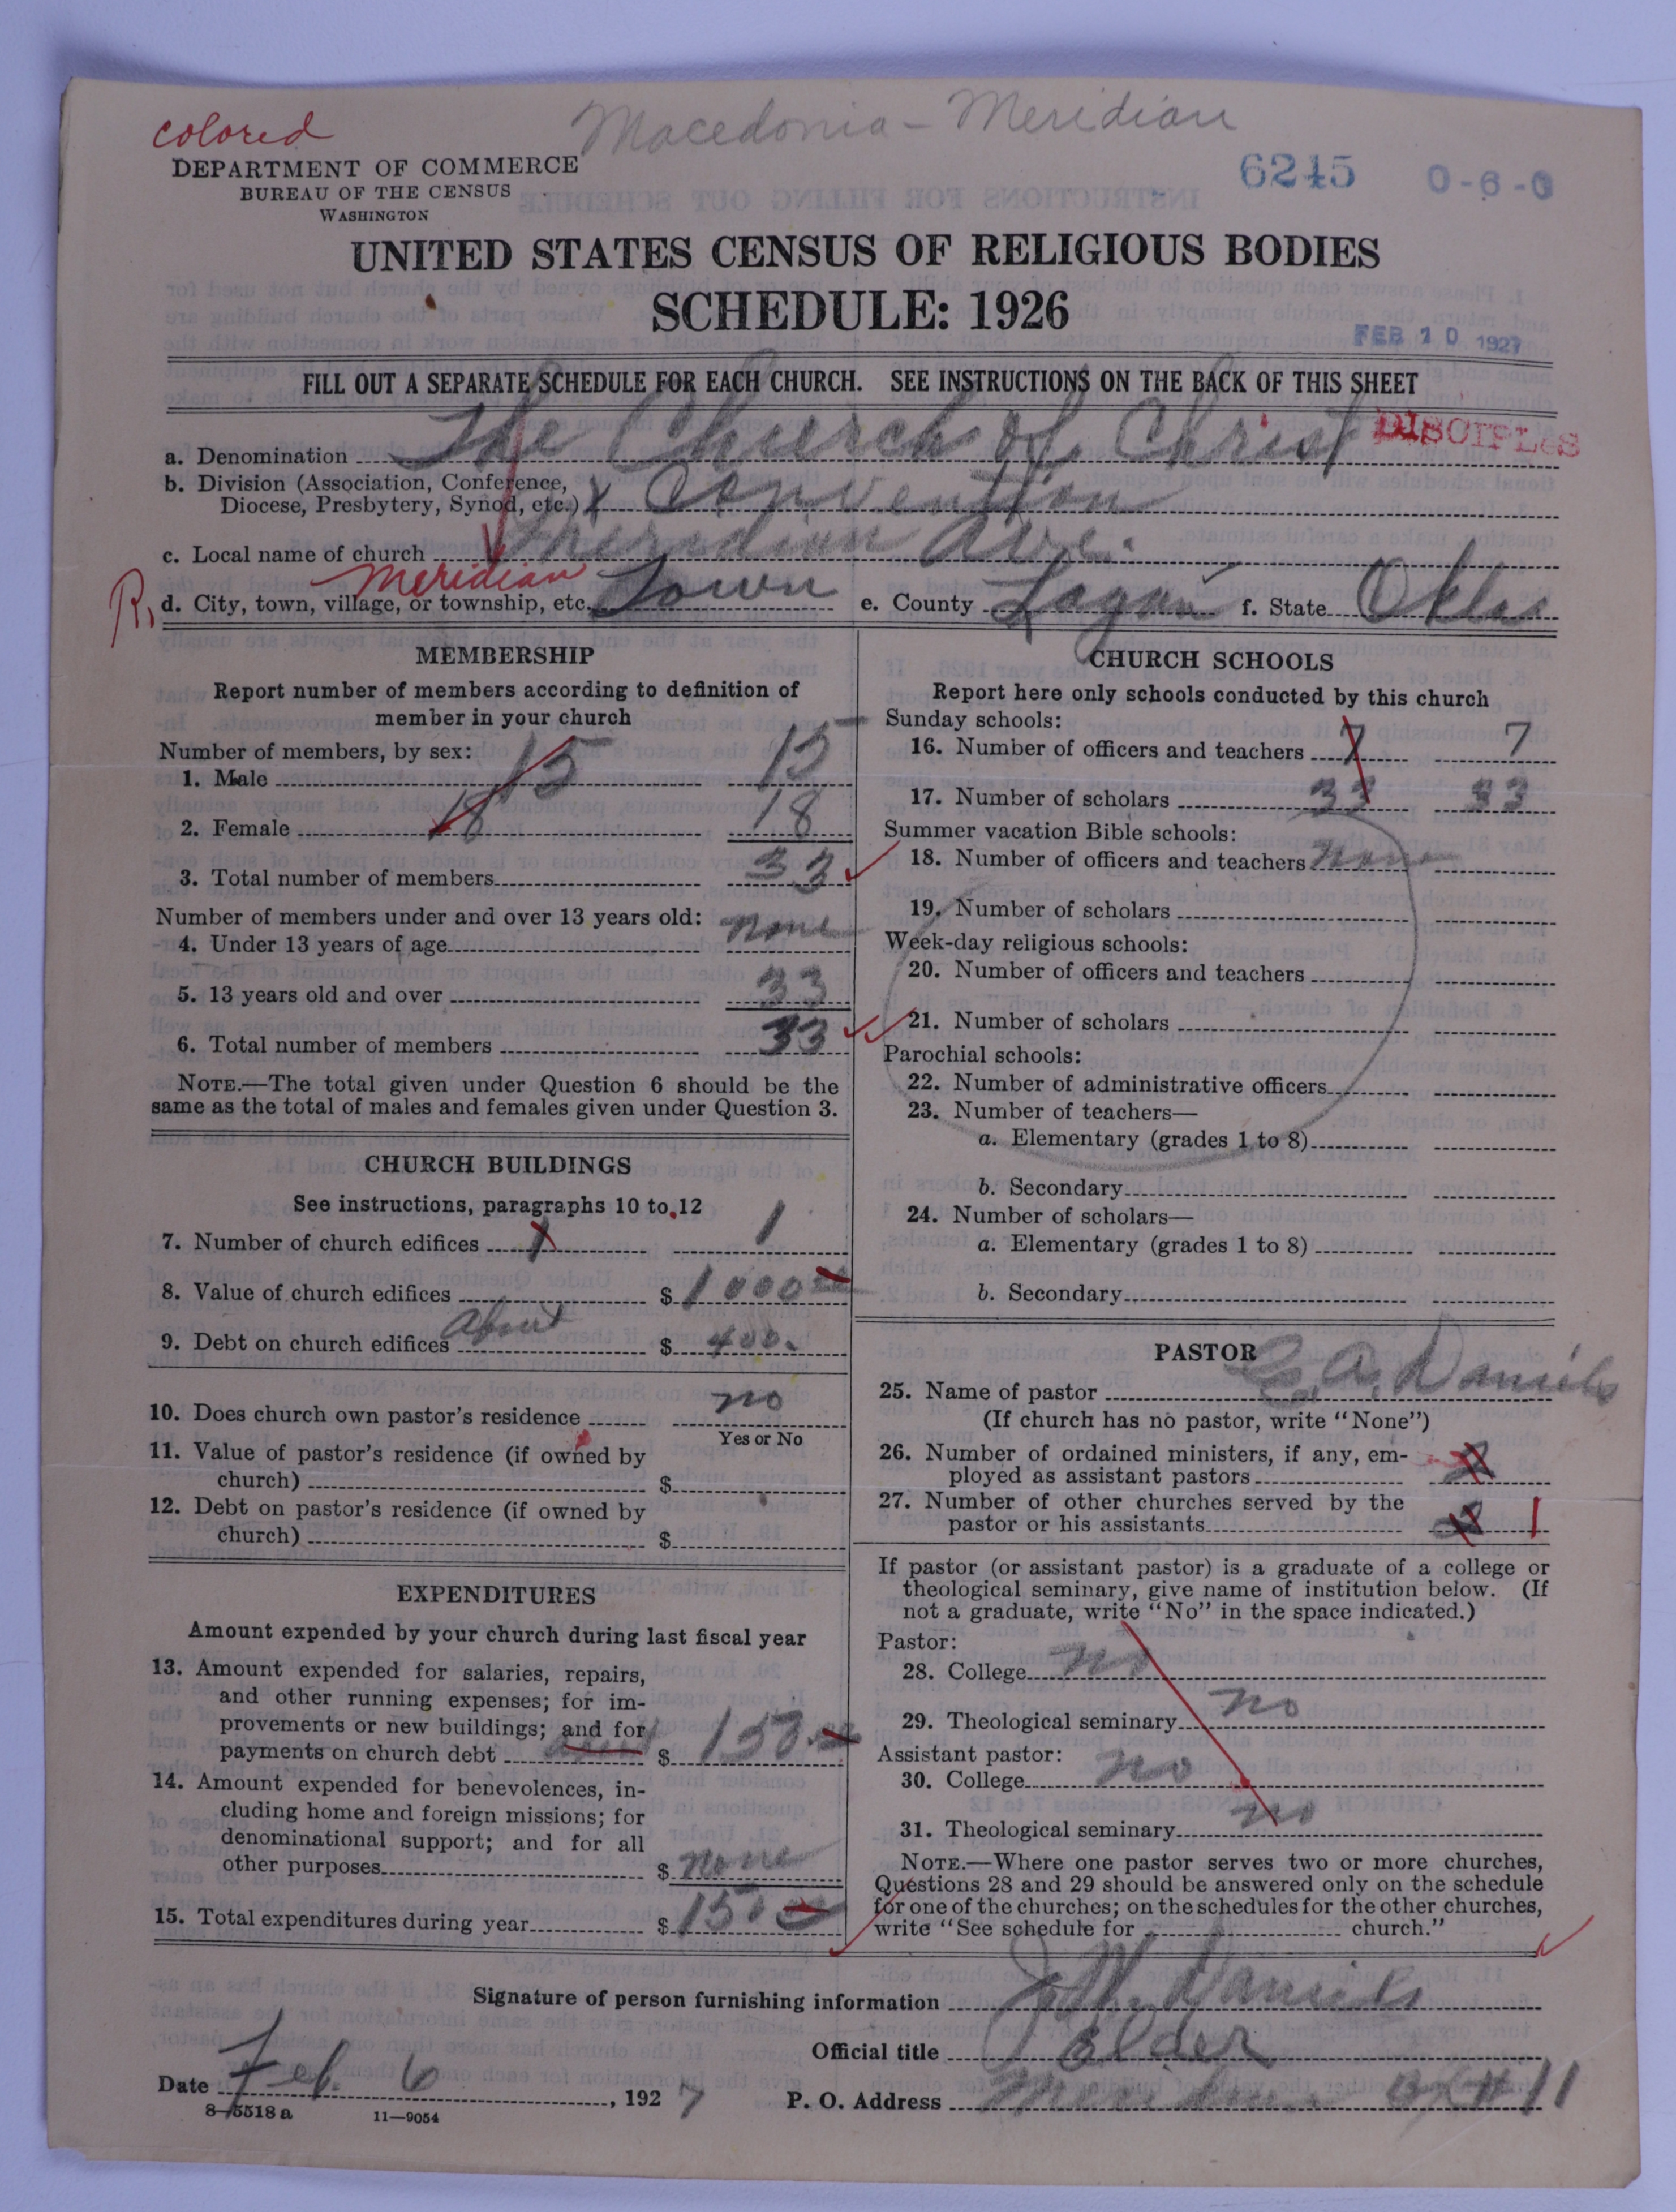 colored
Macedonia - Meridian
DEPARTMENT OF COMMERCE
BUREAU OF THE CENSUS
WASHINGTON
6245 0-6-0
UNITED STATES CENSUS OF RELIGIOUS BODIES
SCHEDULE: 1926
FEB 10 1927
FILL OUT A SEPARATE SCHEDULE FOR EACH CHURCH. SEE INSTRUCTIONS ON THE BACK OF THIS SHEET
a. Denomination The Church of Christ DISCIPLES
b. Division (Association, Conference,
Diocese, Presbytery, Synod, etc.) X Convention
c. Local name of church Meridian Ave.
R. d. City, town, village, or township, etc. Meridian Town e. County Logan f. State Okla
MEMBERSHIP
Report number of members according to definition of
member in your church
Number of members, by sex:
1. Male 15 15
2. Female 18 18
3. Total number of members 33
Number of members under and over 13 years old:
4. Under 13 years of age None
5. 13 years old and over 33
6. Total number of members 33
NOTE.—The total given under Question 6 should be the
same as the total of males and females given under Question 3.
CHURCH BUILDINGS
See instructions, paragraphs 10 to 12
7. Number of church edifices 1 1
8. Value of church edifices $ 1000
9. Debt on church edifices About $ 400.
10. Does church own pastor's residence no
Yes or No
11. Value of pastor's residence (if owned by
church) $
12. Debt on pastor's residence (if owned by
church) $
EXPENDITURES
Amount expended by your church during last fiscal year
13. Amount expended for salaries, repairs,
and other running expenses; for im-
provements or new buildings; and for
payments on church debt $ 150.
14. Amount expended for benevolences, in-
cluding home and foreign missions; for
denominational support; and for all
other purposes $ none
15. Total expenditures during year $ 150
CHURCH SCHOOLS
Report here only schools conducted by this church
Sunday schools:
16. Number of officers and teachers 7 7
17. Number of scholars 33 33
Summer vacation Bible schools:
18. Number of officers and teachers None
19. Number of scholars
Week-day religious schools:
20. Number of officers and teachers
21. Number of scholars
Parochial schools:
22. Number of administrative officers
23. Number of teachers—
a. Elementary (grades 1 to 8)
b. Secondary
24. Number of scholars—
a. Elementary (grades 1 to 8)
b. Secondary
PASTOR
25. Name of pastor A. Daniels
(If church has no pastor, write "None")
26. Number of ordained ministers, if any, em-
ployed as assistant pastors 2
27. Number of other churches served by the
pastor or his assistants 1
If pastor (or assistant pastor) is a graduate of a college or
theological seminary, give name of institution below. (If
not a graduate, write "No" in the space indicated.)
Pastor:
28. College no
29. Theological seminary no
Assistant pastor:
30. College no
31. Theological seminary no
NOTE.—Where one pastor serves two or more churches,
Questions 28 and 29 should be answered only on the schedule
for one of the churches; on the schedules for the other churches,
write "See schedule for church."
Signature of person furnishing information Daniels
Official title Elder
Date Feb. 6, 1927 P. O. Address Meridian 11
8-5518 a 11—9054